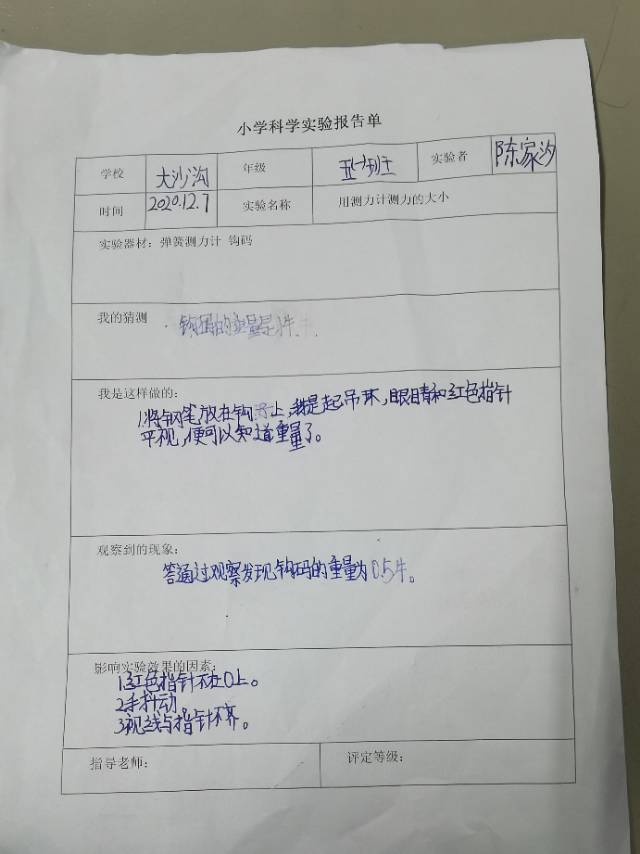 小学科学实验报告单
学校 大沙沟 年级 五(一)班 实验者 陈家汐
时间 2020.12.7 实验名称 用测力计测力的大小
实验器材：弹簧测力计 钩码
我的猜测 钩码的重量是1牛
我是这样做的：
1.将钢笔放在钩上，提起吊环，眼睛和红色指针
平视，便可以知道重量了。
观察到的现象：
答通过观察发现钩码的重量为0.5牛。
影响实验效果的因素：
1.红色指针不在0上。
2手抖动
3视线与指针不齐。
指导老师： 评定等级：